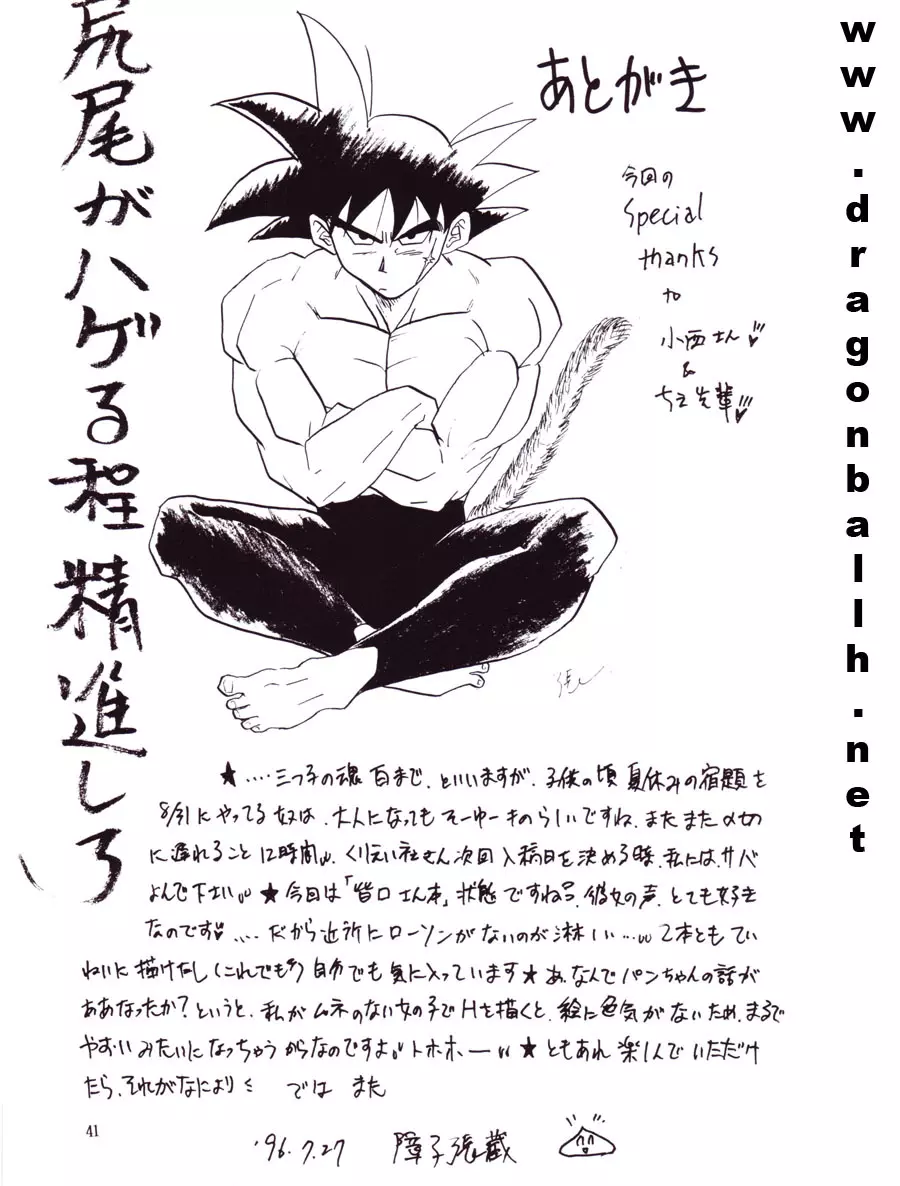 尻尾がハゲる程精進しろ
あとがき
今回の
Special
thanks
to
小西さん
&
ちえ先輩
www.dragonballh.net
★....三つ子の魂百まで、といいますが、子供の頃夏休みの宿題を
8/31にやってる奴は、大人になってもそーゆーものらしいですね、またまた〆切
に遅れること12時間、くりえい社さん次回入稿日を決める時、私には、サバ
よんで下さい。★今回は「皆口さん本」状態ですね、彼女の声、とても好き
なのです....だから近所にローソンがないのが淋しい...2本ともてい
ねいに描けたし(これでも)自分でも気に入っています★あ、なんでパンちゃんの話が
ああなったか?というと、私がムネのない女の子でHを描くと、絵に色気がないため、まるで
やおいみたいになっちゃうからなのですよ トホホー ★ともあれ楽しんでいただけ
たら、それがなにより では また
41
'96.7.27 障子張蔵